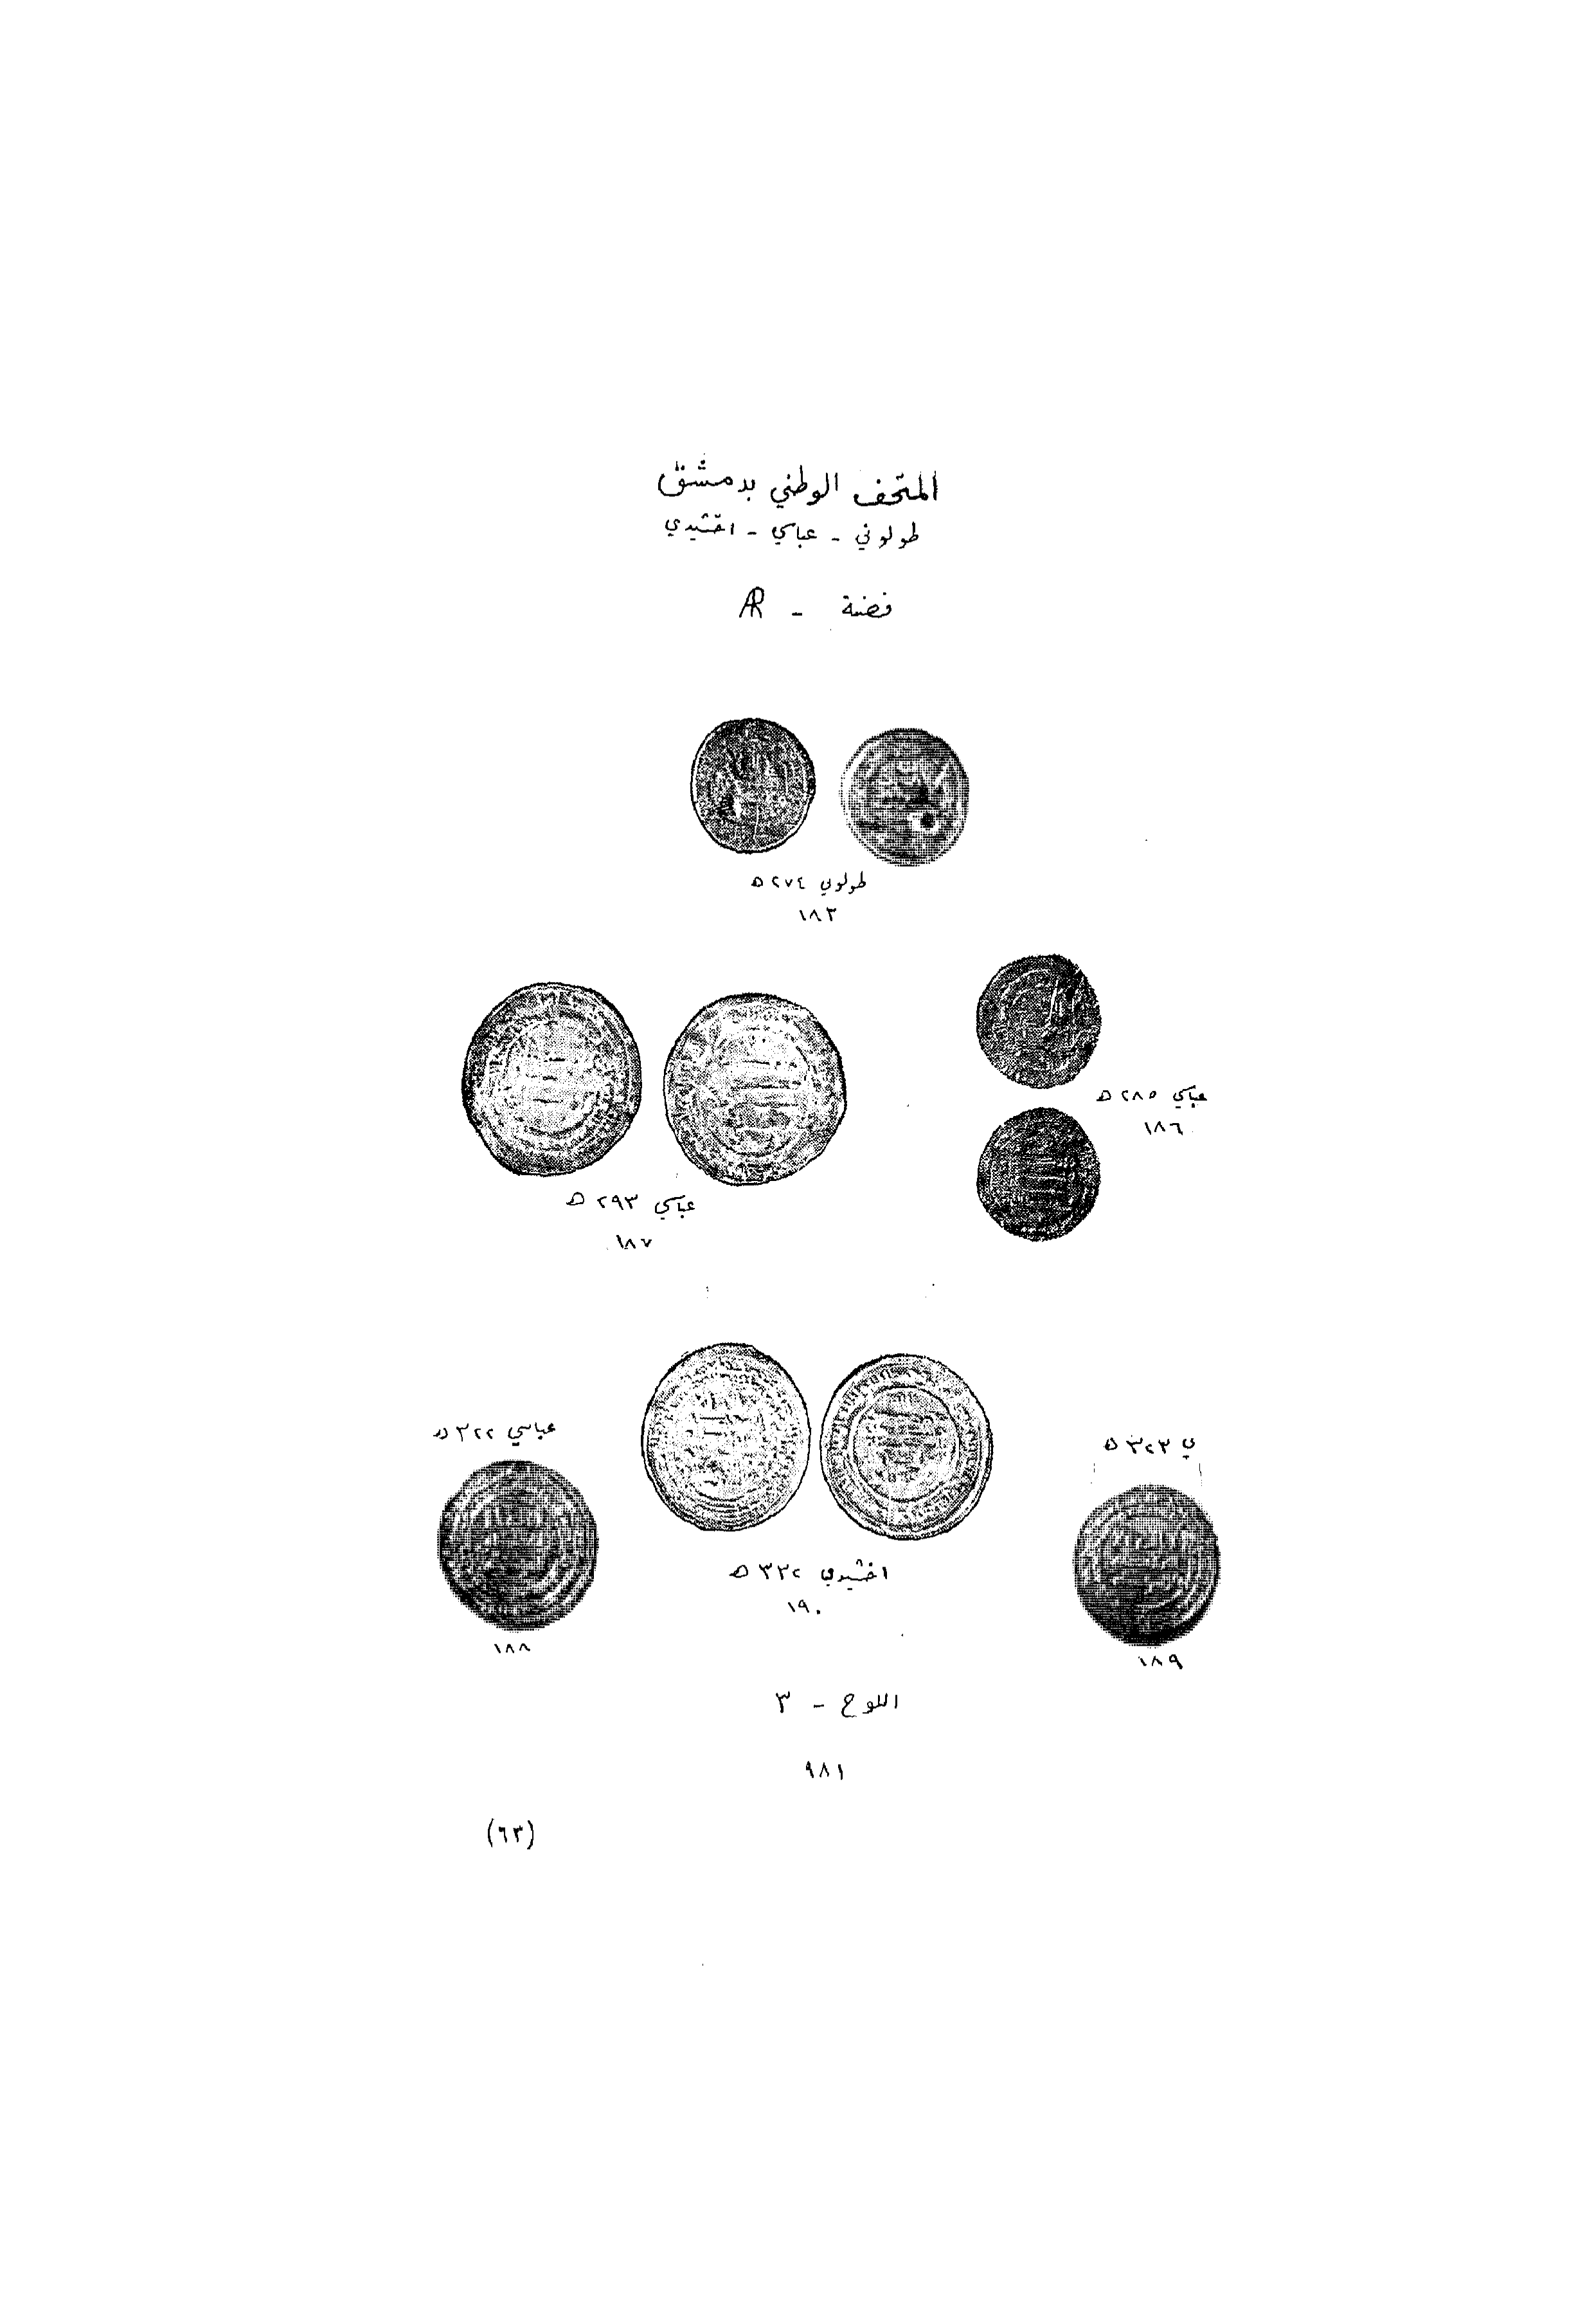 المتحف الوطني بدمشق
طولوني - عباسي - اخشيدي
فضة - AR
طولوني ٢٧٤ ه
١٨٣
عباسي ٢٨٥ ه
١٨٦
عباسي ٢٩٣ ه
١٨٧
عباسي ٣٢٢ ه
١٨٨
ي ٣٢٣ ه
١٨٩
اخشيدي ٣٣٢ ه
١٩٠
اللوح - ٣
٩٨١
(٦٣)